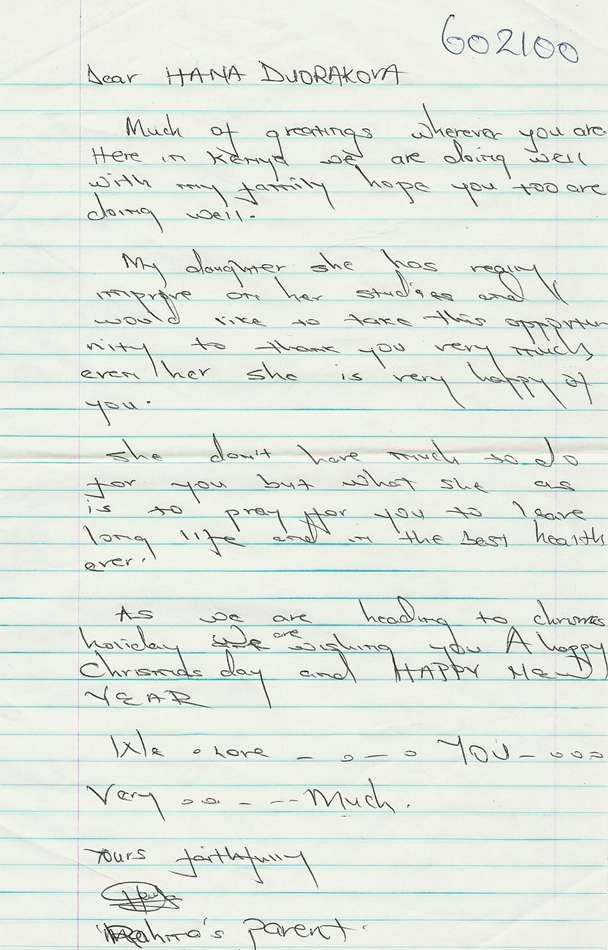 602100
Dear HANA DVORAKOVA
Much of greetings wherever you are
Here in Kenya we are doing well
with my family hope you too are
doing well.
My daughter she has
improve on her studies and I
would like to take this opportu
nity to thank you very much,
even her she is very happy of
you.
she don't have much to do
for you but what she as
is to pray for you to leave
long life and in the best health
ever.
As we are heading to chrismas
holiday we are wishing you A happy
Chrismas day and HAPPY NEW
YEAR
We love YOU
Very Much.
Yours faithfully
Rahma's parent.